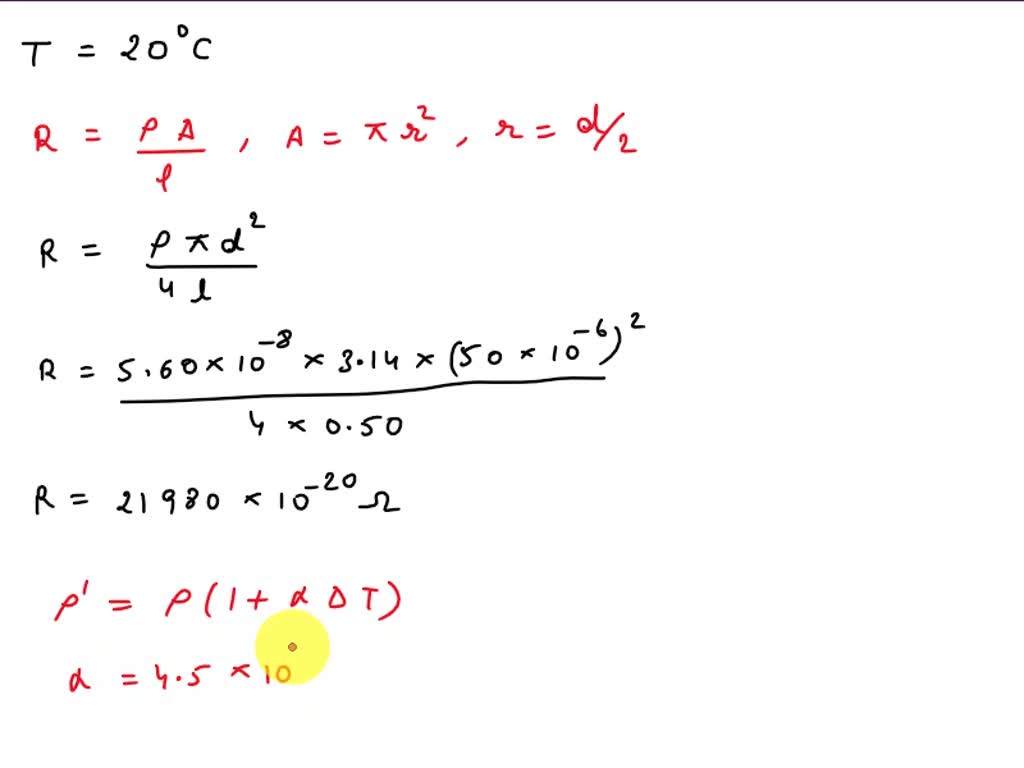 T = 20°C
R = ρA/l , A = πr² , r = d/2
R = ρπd²/4l
R = 5.60 × 10⁻⁸ × 3.14 × (50 × 10⁻⁶)²/4 × 0.50
R = 21980 × 10⁻²⁰ Ω
ρ' = ρ(1 + α Δ T)
α = 4.5 × 10